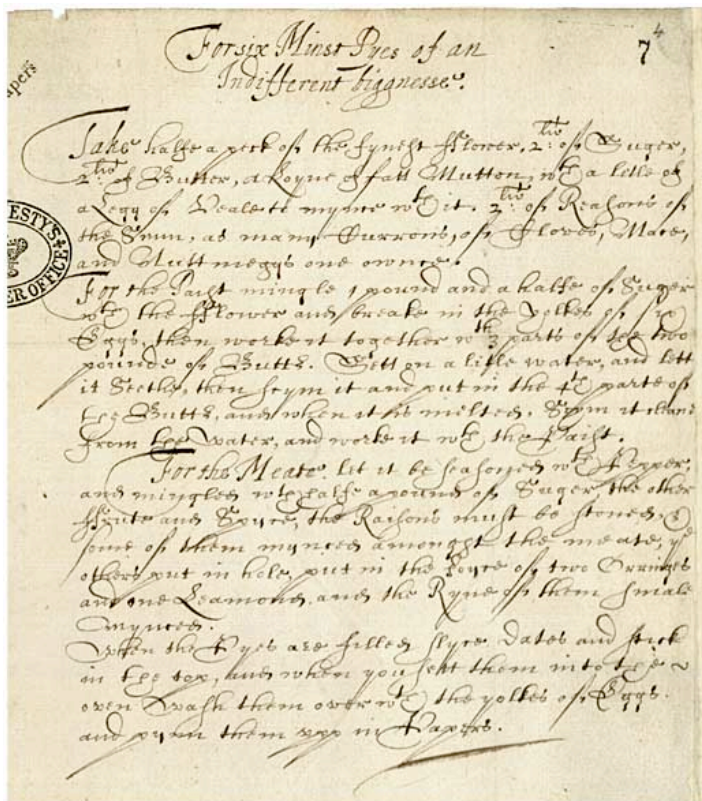 apers
7 4
For six Minst Pyes of an
Indifferent biggnesse.
Take halfe a peck of the fynest fflower, 2li: of Suger,
2li: of Butter, a Loyne of fatt Mutton, wth a litle of
a Legg of Veale to mynce wth it. 2li: of Reasons of
the Sunn, as many Currons, of Cloves, Mace,
and Nuttmeggs one ownce.
For the Paist mingle 1 pound and a halfe of Suger
wth the fflower and breake in the yolkes of six
Eggs, then worke it together wth 3 parts of the two
pounds of Butter. Sett on a litle water, and lett
it Seethe, then scym it and put in the 4th parte of
the Butter, and when it is melted, Scym it cleane
from the water, and worke it wth the Paist.
For the Meate. let it be seasoned wth Pepper,
and mingled wth halfe a pound of Suger, the other
ffrute and Spyce, the Raisons must be stoned, &
some of them mynced amongst the meate, ye
others put in hole, put in the Joyce of two Orringes
and one Leamond, and the Ryne of them smale
mynced.
When the Pyes are filled slyce dates and stick
in the top, and when you sett them into the
oven Wash them over wth the yolkes of Eggs,
and pynn them upp in Papers.
ESTY'S
ER OFFICE